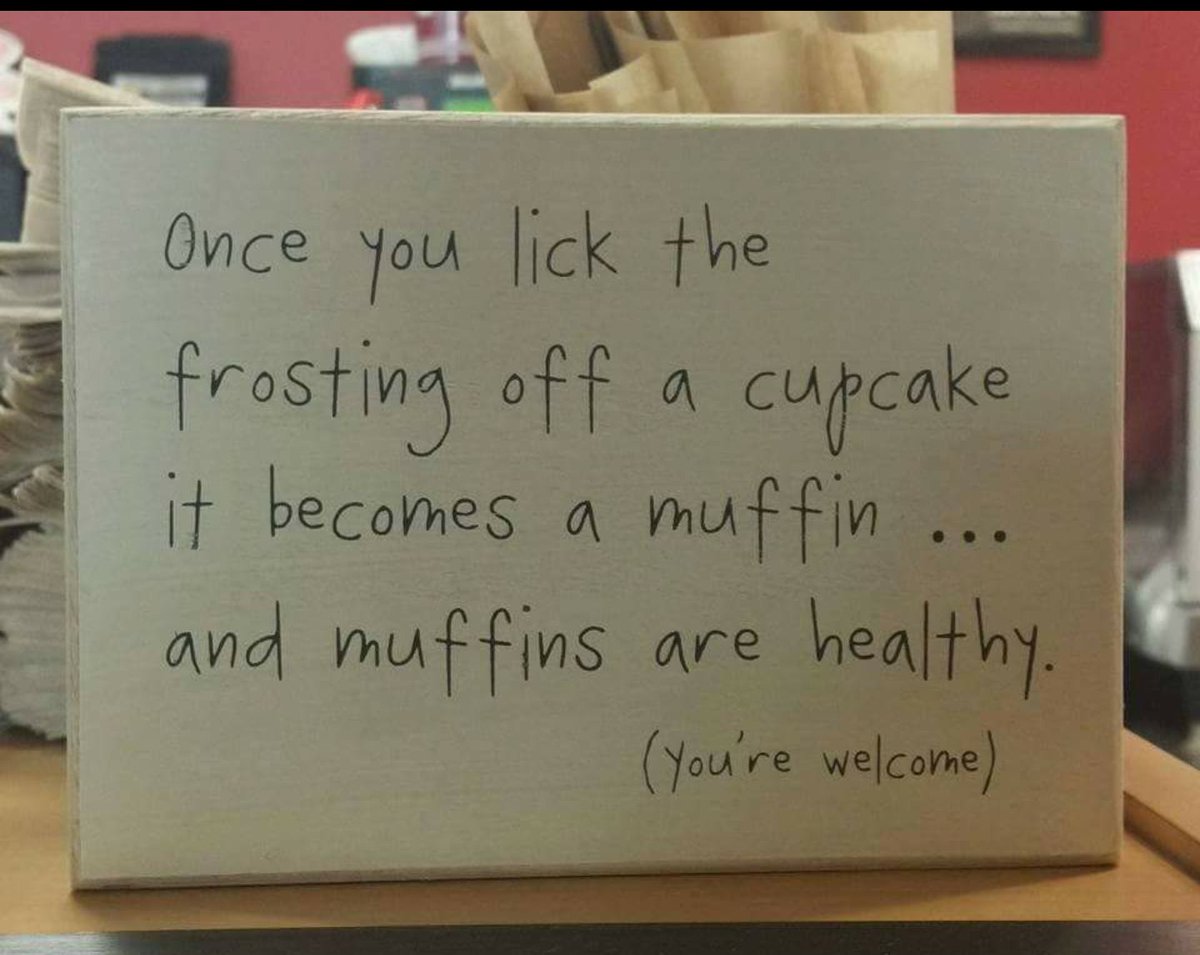 Once you lick the
frosting off a cupcake
it becomes a muffin ...
and muffins are healthy.
(you're welcome)